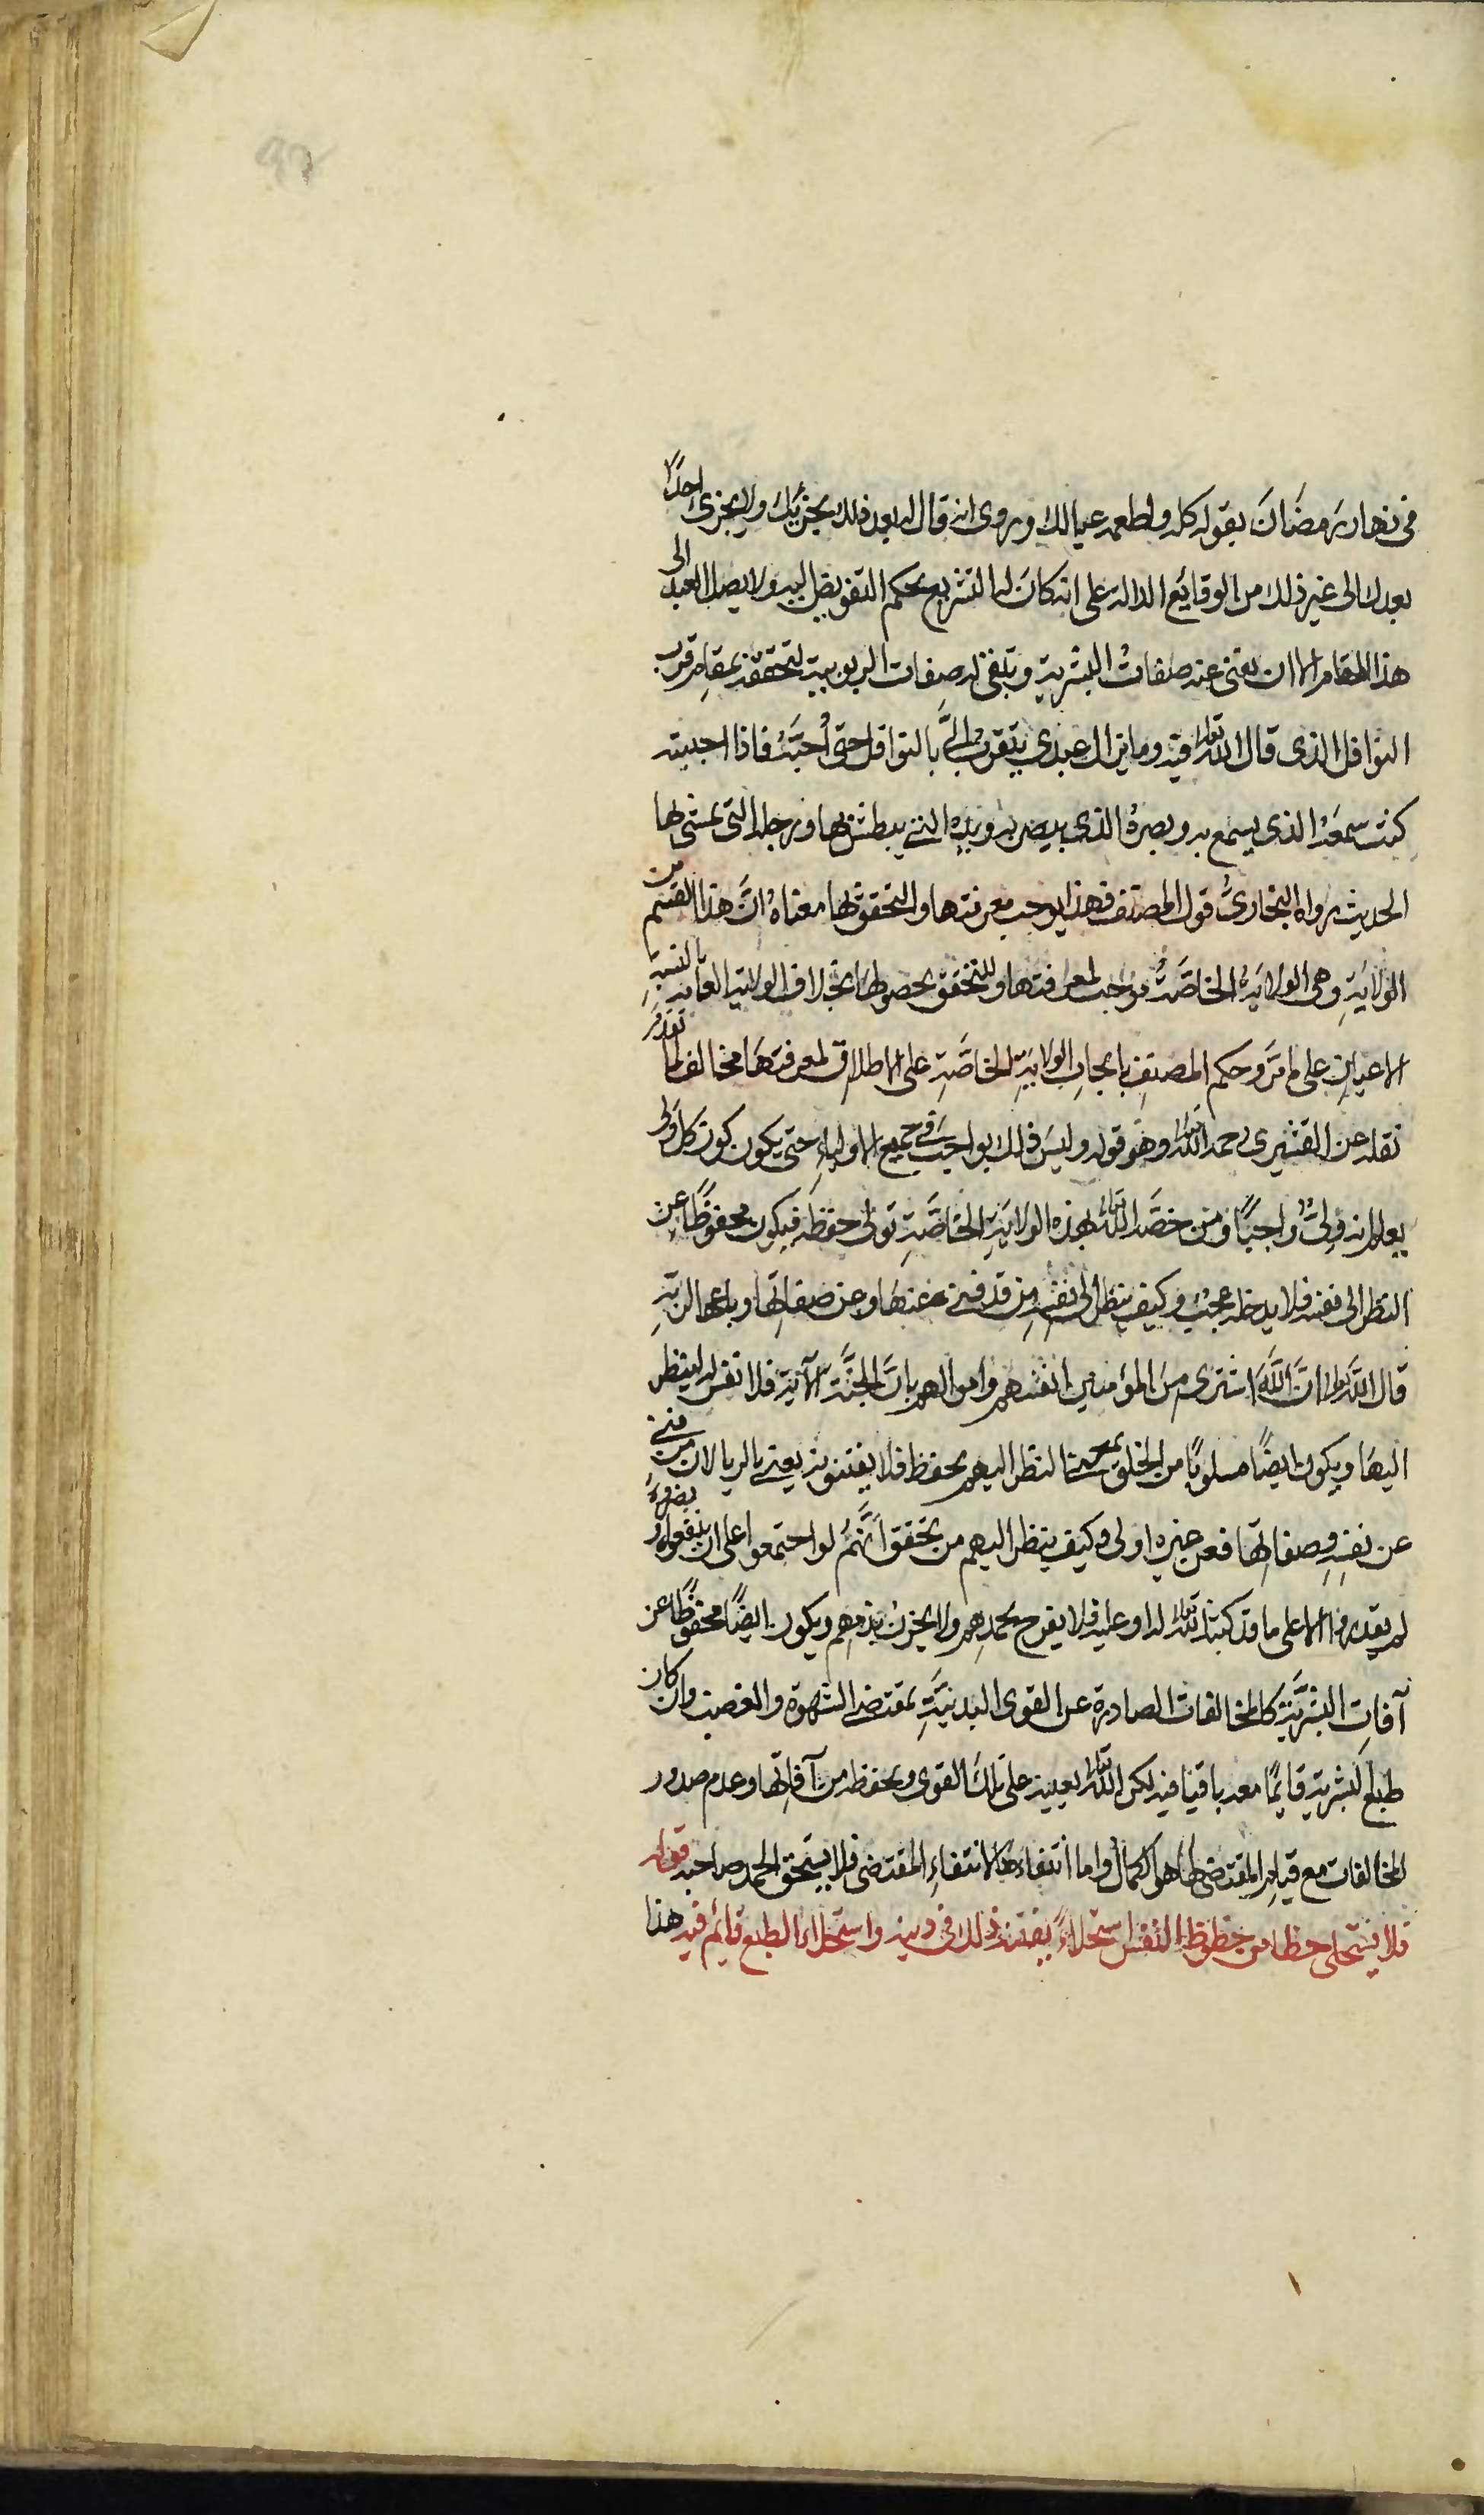 في نهار رمضان بقوله كله واطعمه عيالك وروى انه قال له بعد ذلك يجزيك ولا يجزى احدًا
بعدك الى غير ذلك من الوقايع الدالة على انه كان له التشريع بحكم التفويض اليه ولا يصل العبد الى
هذا المقام الا ان يفنى عنه صفات البشرية وتبقى له صفات الربوبية لتحققه بمقام قرب
النوافل الذى قال الله تعالى فيه وما يزال عبدى يتقرب الىّ بالنوافل حتى أحبَّه فاذا احببته
كنت سمعه الذى يسمع به وبصره الذى يبصر به ويده التى يبطش بها ورجله التى يمشى بها
الحديث رواه البخارى قول المصنف فهذا يوجب معرفتها والتحقق بها معناه انّ هذا القسم من
الولاية وهى الولاية الخاصّة موجب لمعرفتها وللتحقق بحصولها بخلاف الولاية العامة بالنسبة
الاعيان على ما مرّ وحكم المصنف بايجاب الولاية الخاصّة على الاطلاق لمعرفتها مخالف لما تقدم
نقله عن القشيرى رحمه الله تعالى وهو قوله وليس ذلك بواجب فى جميع الاولياء حتى يكون كون كل ولى
يعلم انه ولىّ واجبًا ومن خصّه الله تعالى بهذه الولاية الخاصّة تولى حفظه فيكون محفوظًا عن
النظر الى نفسه فلا يدخله عجب وكيف ينظر الى نفسه من قد فنى عنها وعن صفاتها وباعها لربه
قال الله تعالى انّ الله اشترى من المؤمنين انفسهم واموالهم بانّ لهم الجنّة الآية فلا نفس له لينظر
اليها ويكون ايضًا مسلوبًا من الخلق بمعنى النظر اليهم بحفظ فلا يفتنونه يعنى بالريا لان من فنى
عن نفسه وصفاتها فعن غيره اولى وكيف ينظر اليهم من تحقق انّهم لو اجتمعوا على ان ينفعوه او يضروه
لم يقدروا الا على ما قد كتبه الله تعالى له او عليه فلا يفرح بحمدهم ولا يحزن بذمهم ويكون ايضًا محفوظًا عن
آفات البشريّة كالمخالفات الصادرة عن القوى البدنيّة بمقتضى الشهوة والغضب وان كان
طبع البشرية قايمًا معه باقيا فيه لكن الله تعالى يعينه على تلك القوى ويحفظه من آفاتها وعدم صدور
المخالفات مع قيام المقتضى لها هو الكمال واما انتفاءها لانتفاء المقتضى فلا يستحق الحمد صاحبه قوله
فلا يستحلى حظا من حظوظ النفس استحلاءً يفتنه ذلك فى دينه واستحلاء الطبع قائم فيه هذا